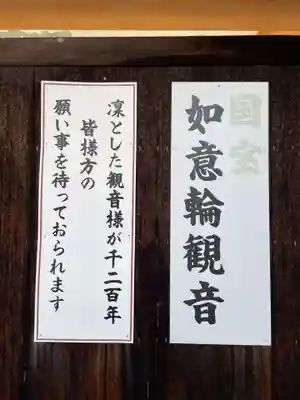 国宝
如意輪観音
凜とした観音様が千二百年
皆様方の
願い事を待っておられます